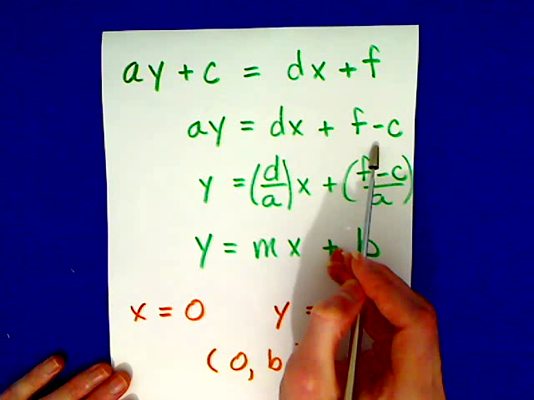 ay + c = dx + f
ay = dx + f - c
y = (d/a)x + (f-c/a)
y = mx + b
x = 0 y =
(0, b